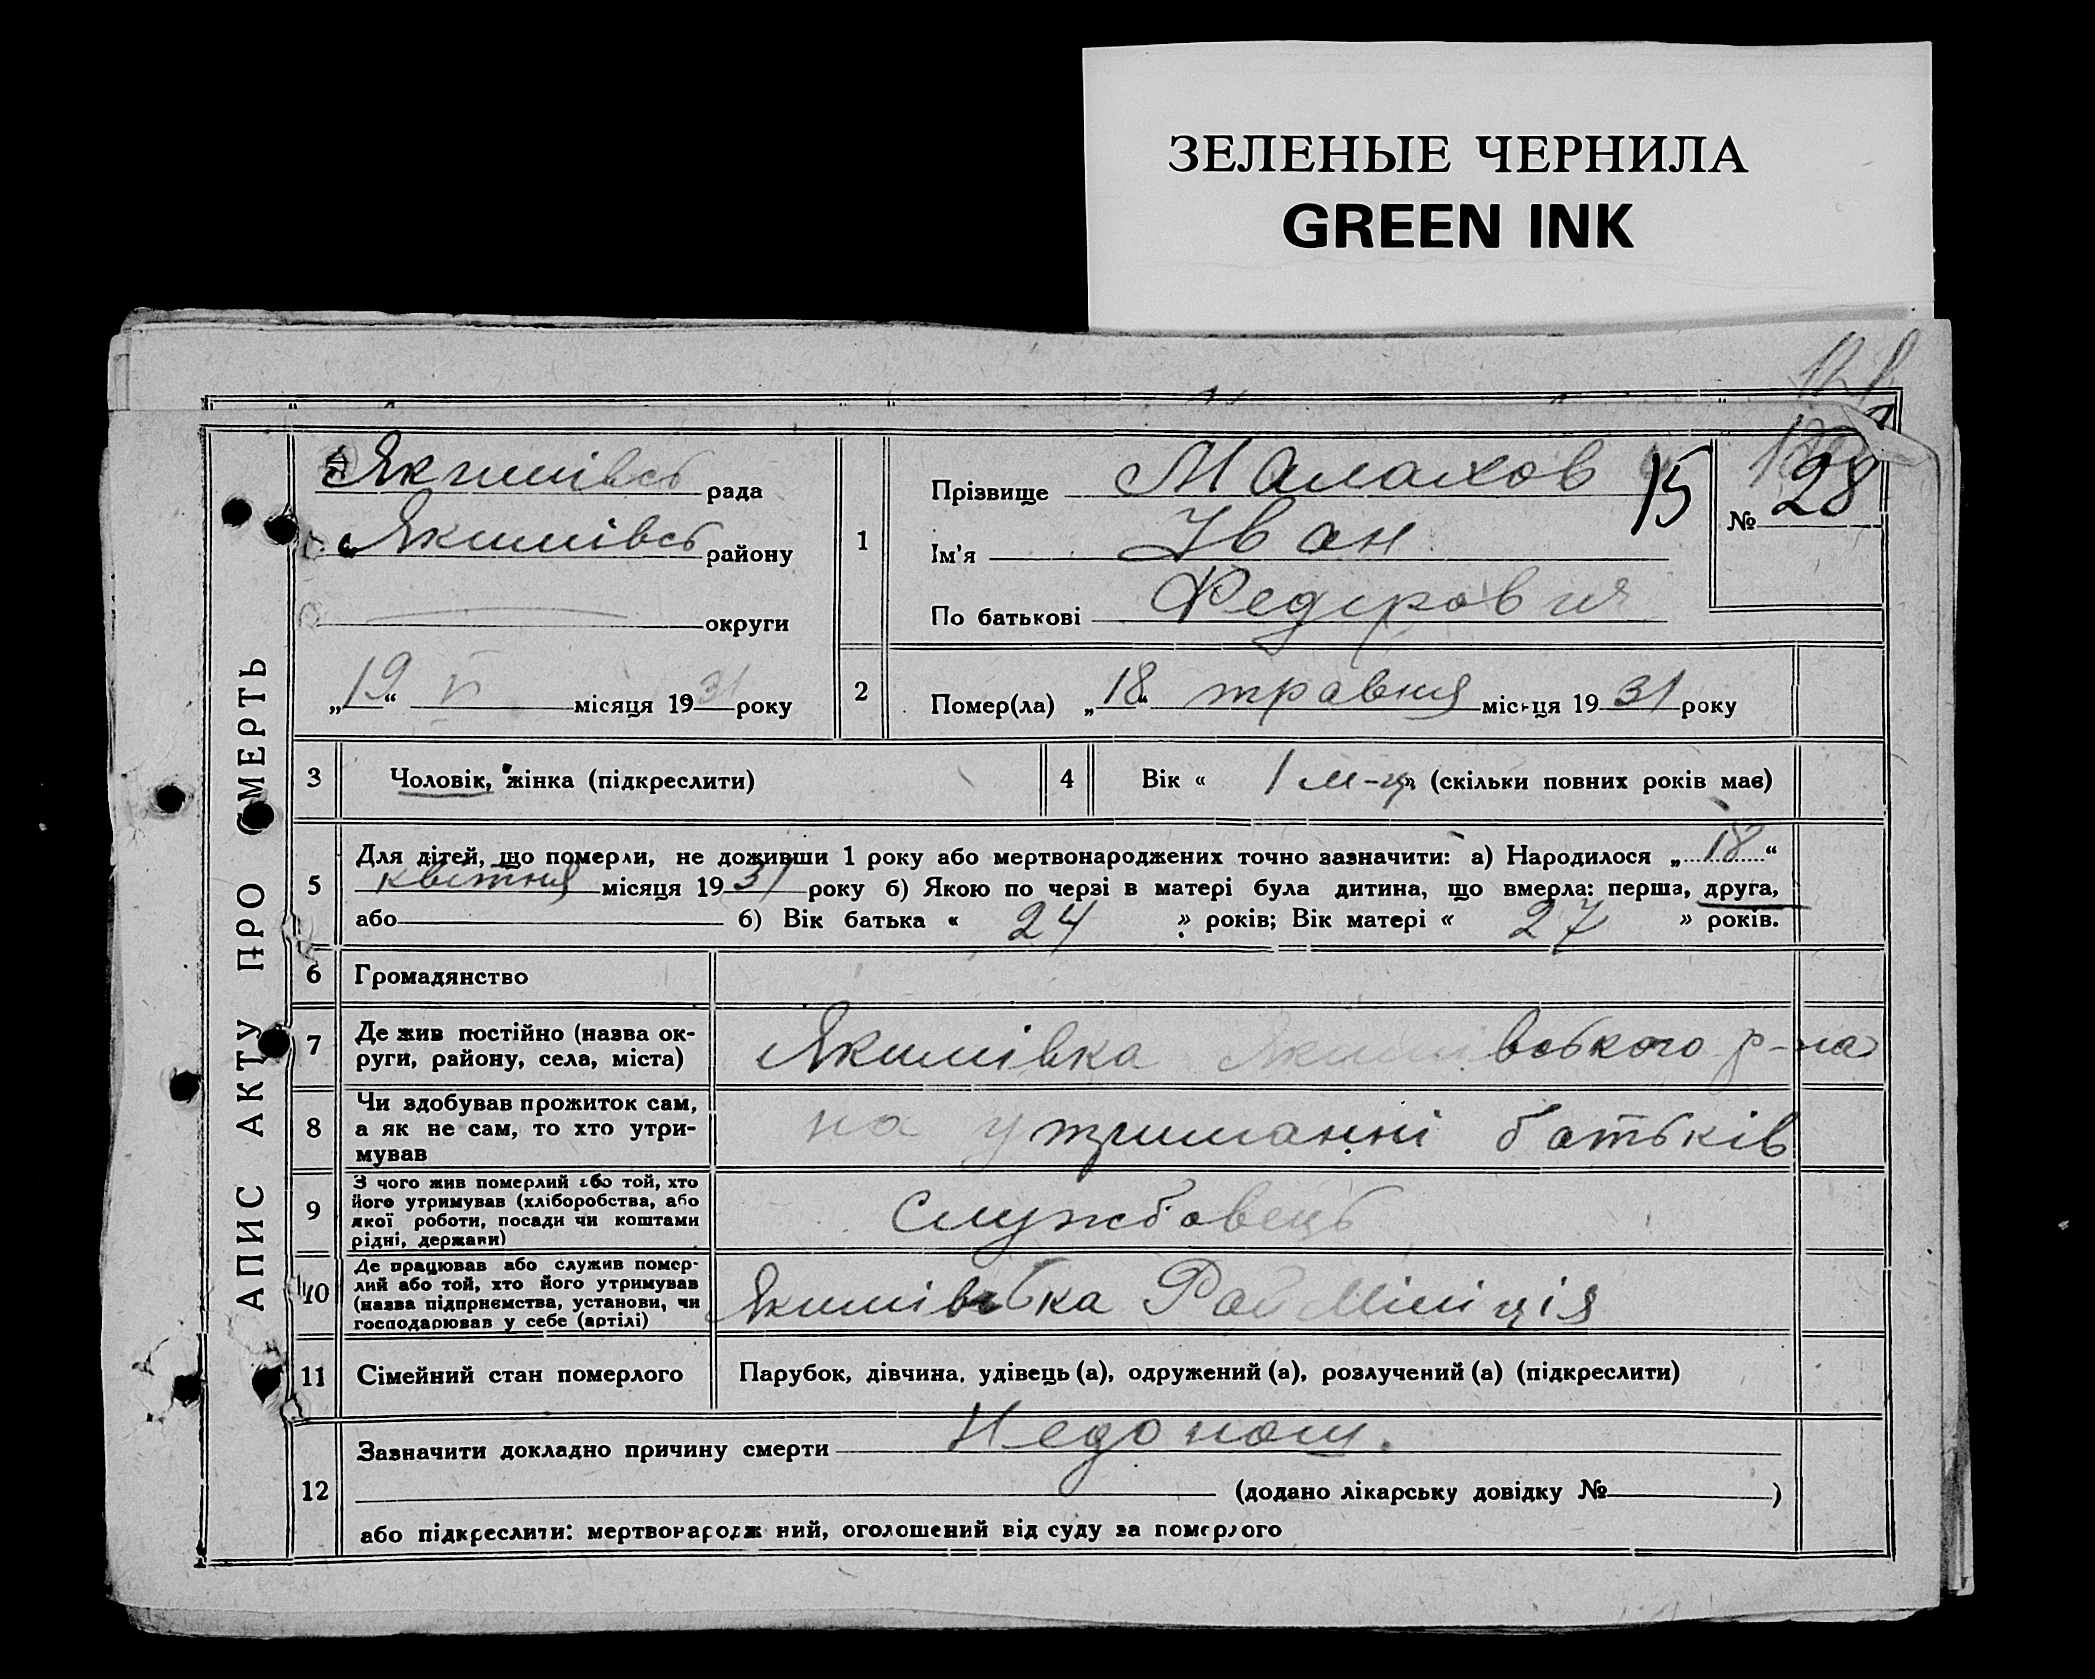 ЗЕЛЕНЫЕ ЧЕРНИЛА
GREEN INK
АПИС АКТУ ПРО СМЕРТЬ
Якимівсь рада
Якимівсь району
округи
„19“ V місяця 1931 року
1
Прізвище Малахов 15
№ 28
Ім'я Іван
По батькові Федірович
2
Помер(ла) „18“ травня місяця 1931 року
3 Чоловік, жінка (підкреслити)
4 Вік « 1 м-ць » (скільки повних років має)
5
Для дітей, що померли, не доживши 1 року або мертвонароджених точно зазначити: а) Народилося „18“
квітня місяця 1931 року б) Якою по черзі в матері була дитина, що вмерла: перша, друга,
або б) Вік батька « 24 » років; Вік матері « 27 » років.
6 Громадянство
7 Де жив постійно (назва ок-
руги, району, села, міста)
Якимівка Якимівського р-на
8 Чи здобував прожиток сам,
а як не сам, то хто утри-
мував
на утриманні батьків
9 З чого жив померлий або той, хто
його утримував (хліборобства, або
якої роботи, посади чи коштами
рідні, держави)
Службовець
10 Де працював або служив помер-
лий або той, хто його утримував
(назва підприємства, установи, чи
господарював у себе (артілі)
Якимівська РайМіліція
11 Сімейний стан померлого
Парубок, дівчина, удівець (а), одружений (а), розлучений (а) (підкреслити)
12
Зазначити докладно причину смерти Недонош.
(додано лікарську довідку № )
або підкреслити: мертвонародж ний, оголошений від суду за померлого